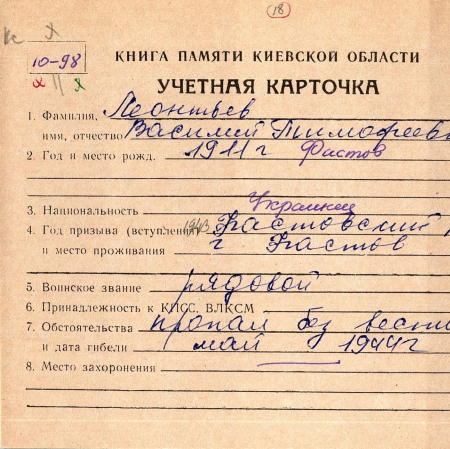 18
к х
10-98
х || х
КНИГА ПАМЯТИ КИЕВСКОЙ ОБЛАСТИ
УЧЕТНАЯ КАРТОЧКА
1. Фамилия, Леонтьев
имя, отчество Василий Тимофееви
2. Год и место рожд. 1911 г Фастов
3. Национальность Украинец
4. Год призыва (вступления) 1943 Фастовский
и место проживания г Фастов
5. Воинское звание рядовой
6. Принадлежность к КПСС, ВЛКСМ
7. Обстоятельства пропал без вести
и дата гибели май 1944 г
8. Место захоронения